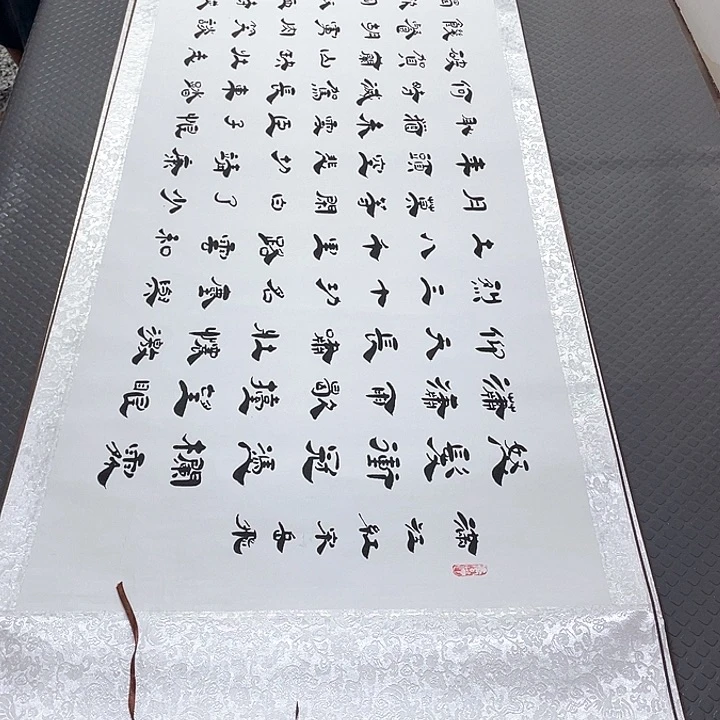 滿江紅 宋 岳飛
怒髮衝冠憑欄處
瀟瀟雨歇擡望眼
仰天長嘯壯懷激
烈三十功名塵與
土八千里路雲和
月莫等閒白了少
年頭空悲切靖康
恥猶未雪臣子恨
何時滅駕長車踏
破賀蘭山缺壯志
飢餐胡虜肉笑談